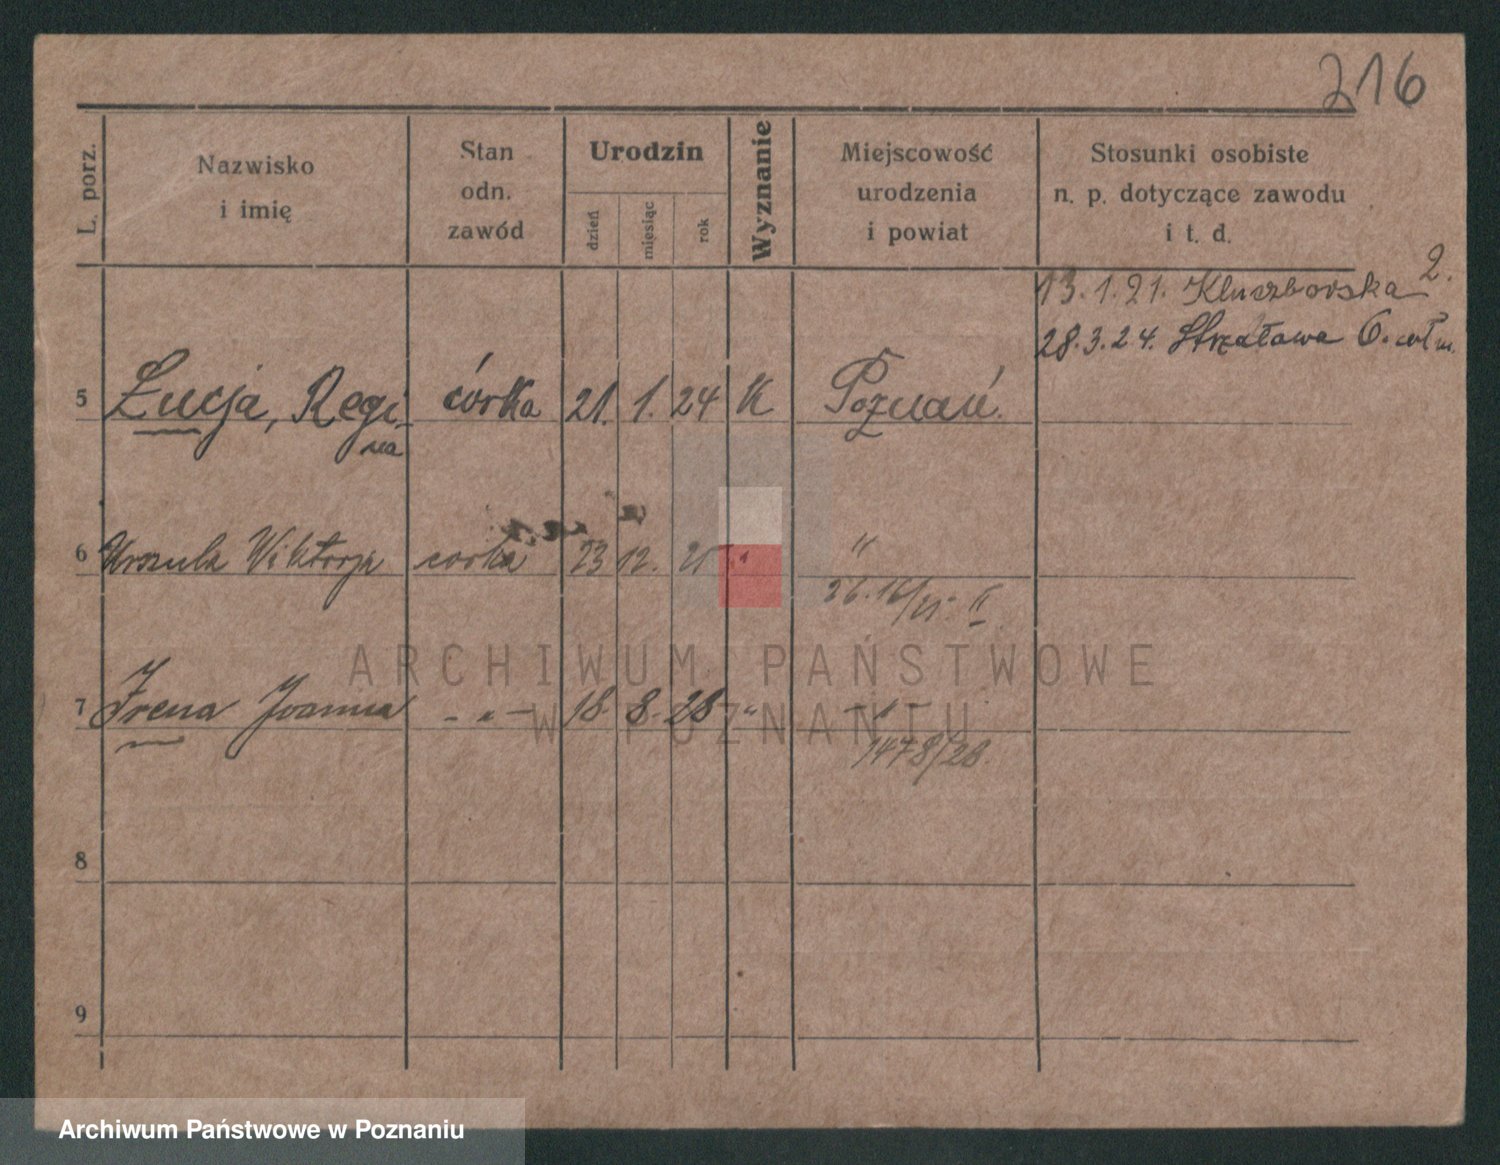 216
L. porz.
Nazwisko
i imię
Stan
odn.
zawód
Urodzin
dzień
miesiąc
rok
Wyznanie
Miejscowość
urodzenia
i powiat
Stosunki osobiste
n. p. dotyczące zawodu
i t. d.
13.1.21. Kluczborska 2.
28.3.24. Strzałowa 6.
5 Łucja, Regi- córka 21. 1. 24 K Poznań.
na
6 Urszula Wiktorja corka 23 12. 25 " "
7 Irena Joanna - " - 18. 8. 28 " - " -
1478/28.
8
9
ARCHIWUM PAŃSTWOWE
W POZNANIU
Archiwum Państwowe w Poznaniu